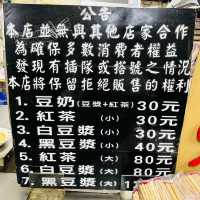 公告
本店並無與其他店家合作
為確保多數消費者權益
發現有插隊或搭號之情況
本店將保留拒絕販售的權利
1. 豆奶(豆漿+紅茶) 30元
2. 紅茶 (小) 30元
3. 白豆漿 (小) 30元
4. 黑豆漿 (小) 40元
5. 紅茶 (大) 80元
6. 白豆漿 (大) 80元
7. 黑豆漿 (大)